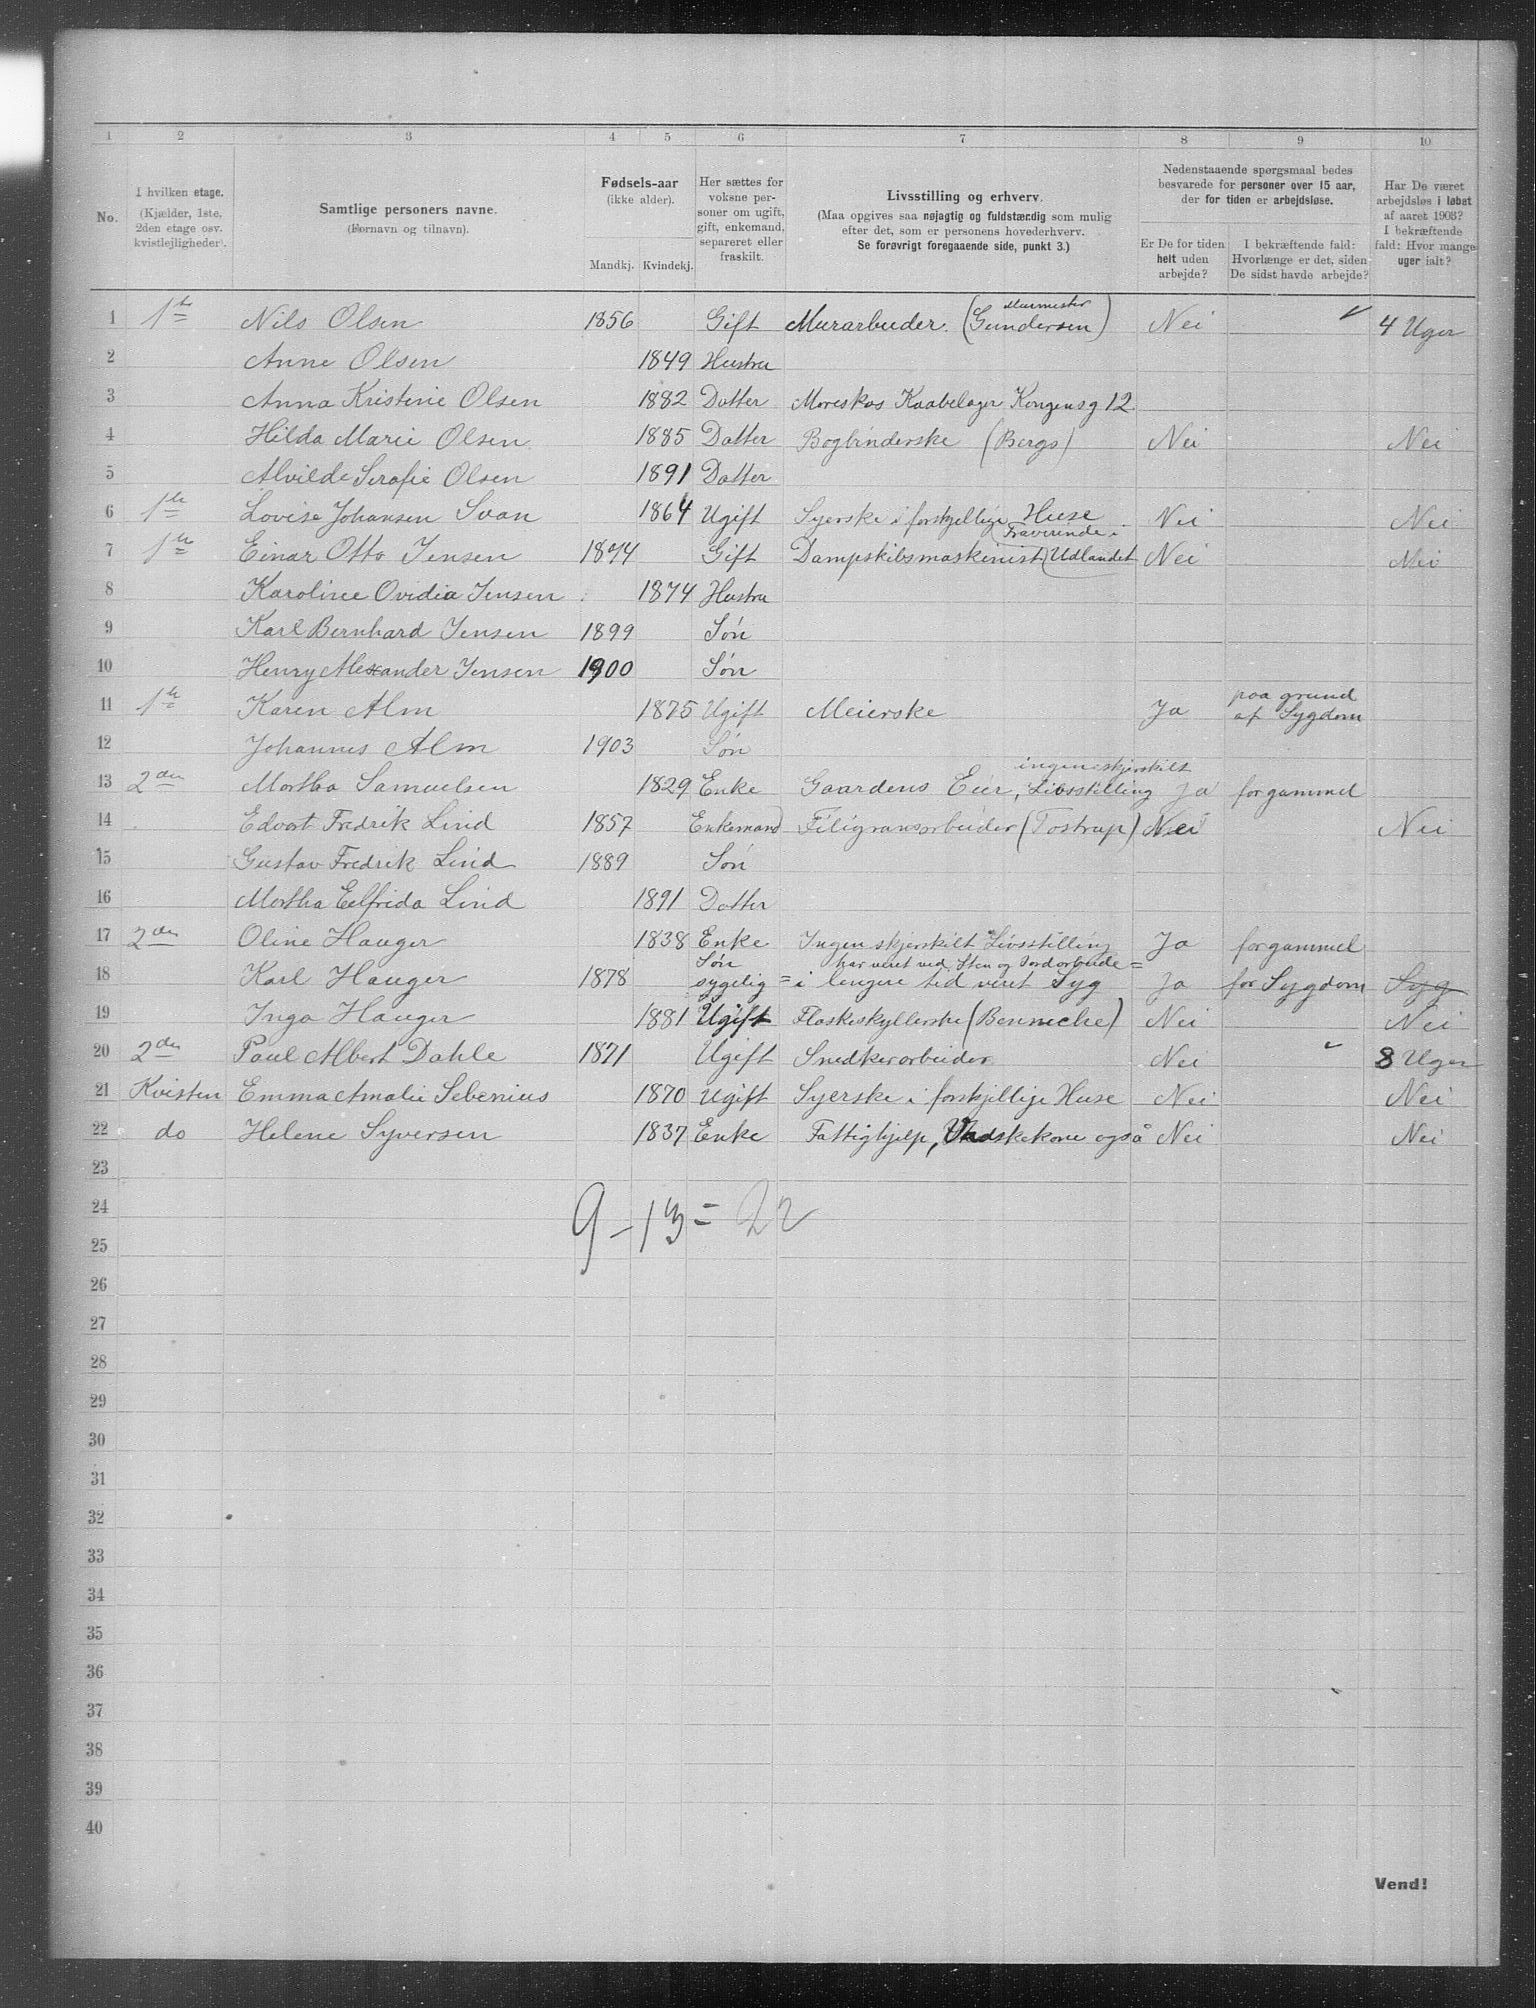 1 2 3 4 5 6 7 8 9 10
No.
I hvilken etage.
(Kjælder, 1ste, 2den etage osv. kvistlejligheder).
Samtlige personers navne.
(Fornavn og tilnavn).
Fødsels-aar
(ikke alder).
Mandkj. Kvindekj.
Her sættes for voksne personer om ugift, gift, enkemand, separeret eller fraskilt.
Livsstilling og erhverv.
(Maa opgives saa nøjagtig og fuldstændig som mulig efter det, som er personens hovederhverv.
Se forøvrigt foregaaende side, punkt 3.)
Nedenstaaende spørgsmaal bedes besvarede for personer over 15 aar, der for tiden er arbejdsløse.
Er De for tiden helt uden arbejde?
I bekræftende fald: Hvorlænge er det, siden De sidst havde arbejde?
Har De været arbejdsløs i løbet af aaret 1903? I bekræftende fald: Hvor mange uger ialt?
1 1ste Nils Olsen 1856 Gift Murarbeider. (Murmester Gundersen) Nei 4 Uger
2 Anne Olsen 1849 Hustru
3 Anna Kristine Olsen 1882 Datter Moreskos Kaabelager Kongensg 12
4 Hilda Marie Olsen 1885 Datter Bogbinderske (Bergs) Nei Nei
5 Alvilde Serafie Olsen 1891 Datter
6 1ste Lovise Johansen Svan 1864 Ugift Syerske i forskjellige Huse Nei Nei
7 1ste Einar Otto Jensen 1874 Gift Dampskibsmaskinist (Fraverende Udlandet Nei Nei
8 Karoline Ovidia Jensen 1874 Hustru
9 Karl Bernhard Jensen 1899 Søn
10 Henry Alexander Jensen 1900 Søn
11 1ste Karen Alm 1875 Ugift Meierske Ja paa grund af Sygdom
12 Johannes Alm 1903 Søn
13 2den Martha Samuelsen 1829 Enke Gaardens Eier, ingen skjerskilt Livsstilling Ja for gammel
14 Edvart Fredrik Lind 1857 Enkemand Filigransarbeider (Tostrup) Nei Nei
15 Gustav Fredrik Lind 1889 Søn
16 Martha Elfrida Lind 1891 Datter
17 2den Oline Hauger 1838 Enke Ingen skjerskilt Livsstilling Ja for gammel
18 Karl Hauger 1878 Søn sygelig = har veret ved Sten og Jordarbeide = i lengere tid veret Syg Ja for Sygdom Syg
19 Inga Hauger 1881 Ugift Flaskeskyllerske (Benneche) Nei Nei
20 2den Paul Albert Dahle 1871 Ugift Snedkerarbeider Nei 8 Uger
21 Kvisten Emma Amalie Sebenius 1870 Ugift Syerske i forskjellige Huse Nei Nei
22 do Helene Syversen 1837 Enke Fattighjelp, Vadskekone også Nei Nei
23
24
9 – 13 = 22
25
26
27
28
29
30
31
32
33
34
35
36
37
38
39
40
Vend!